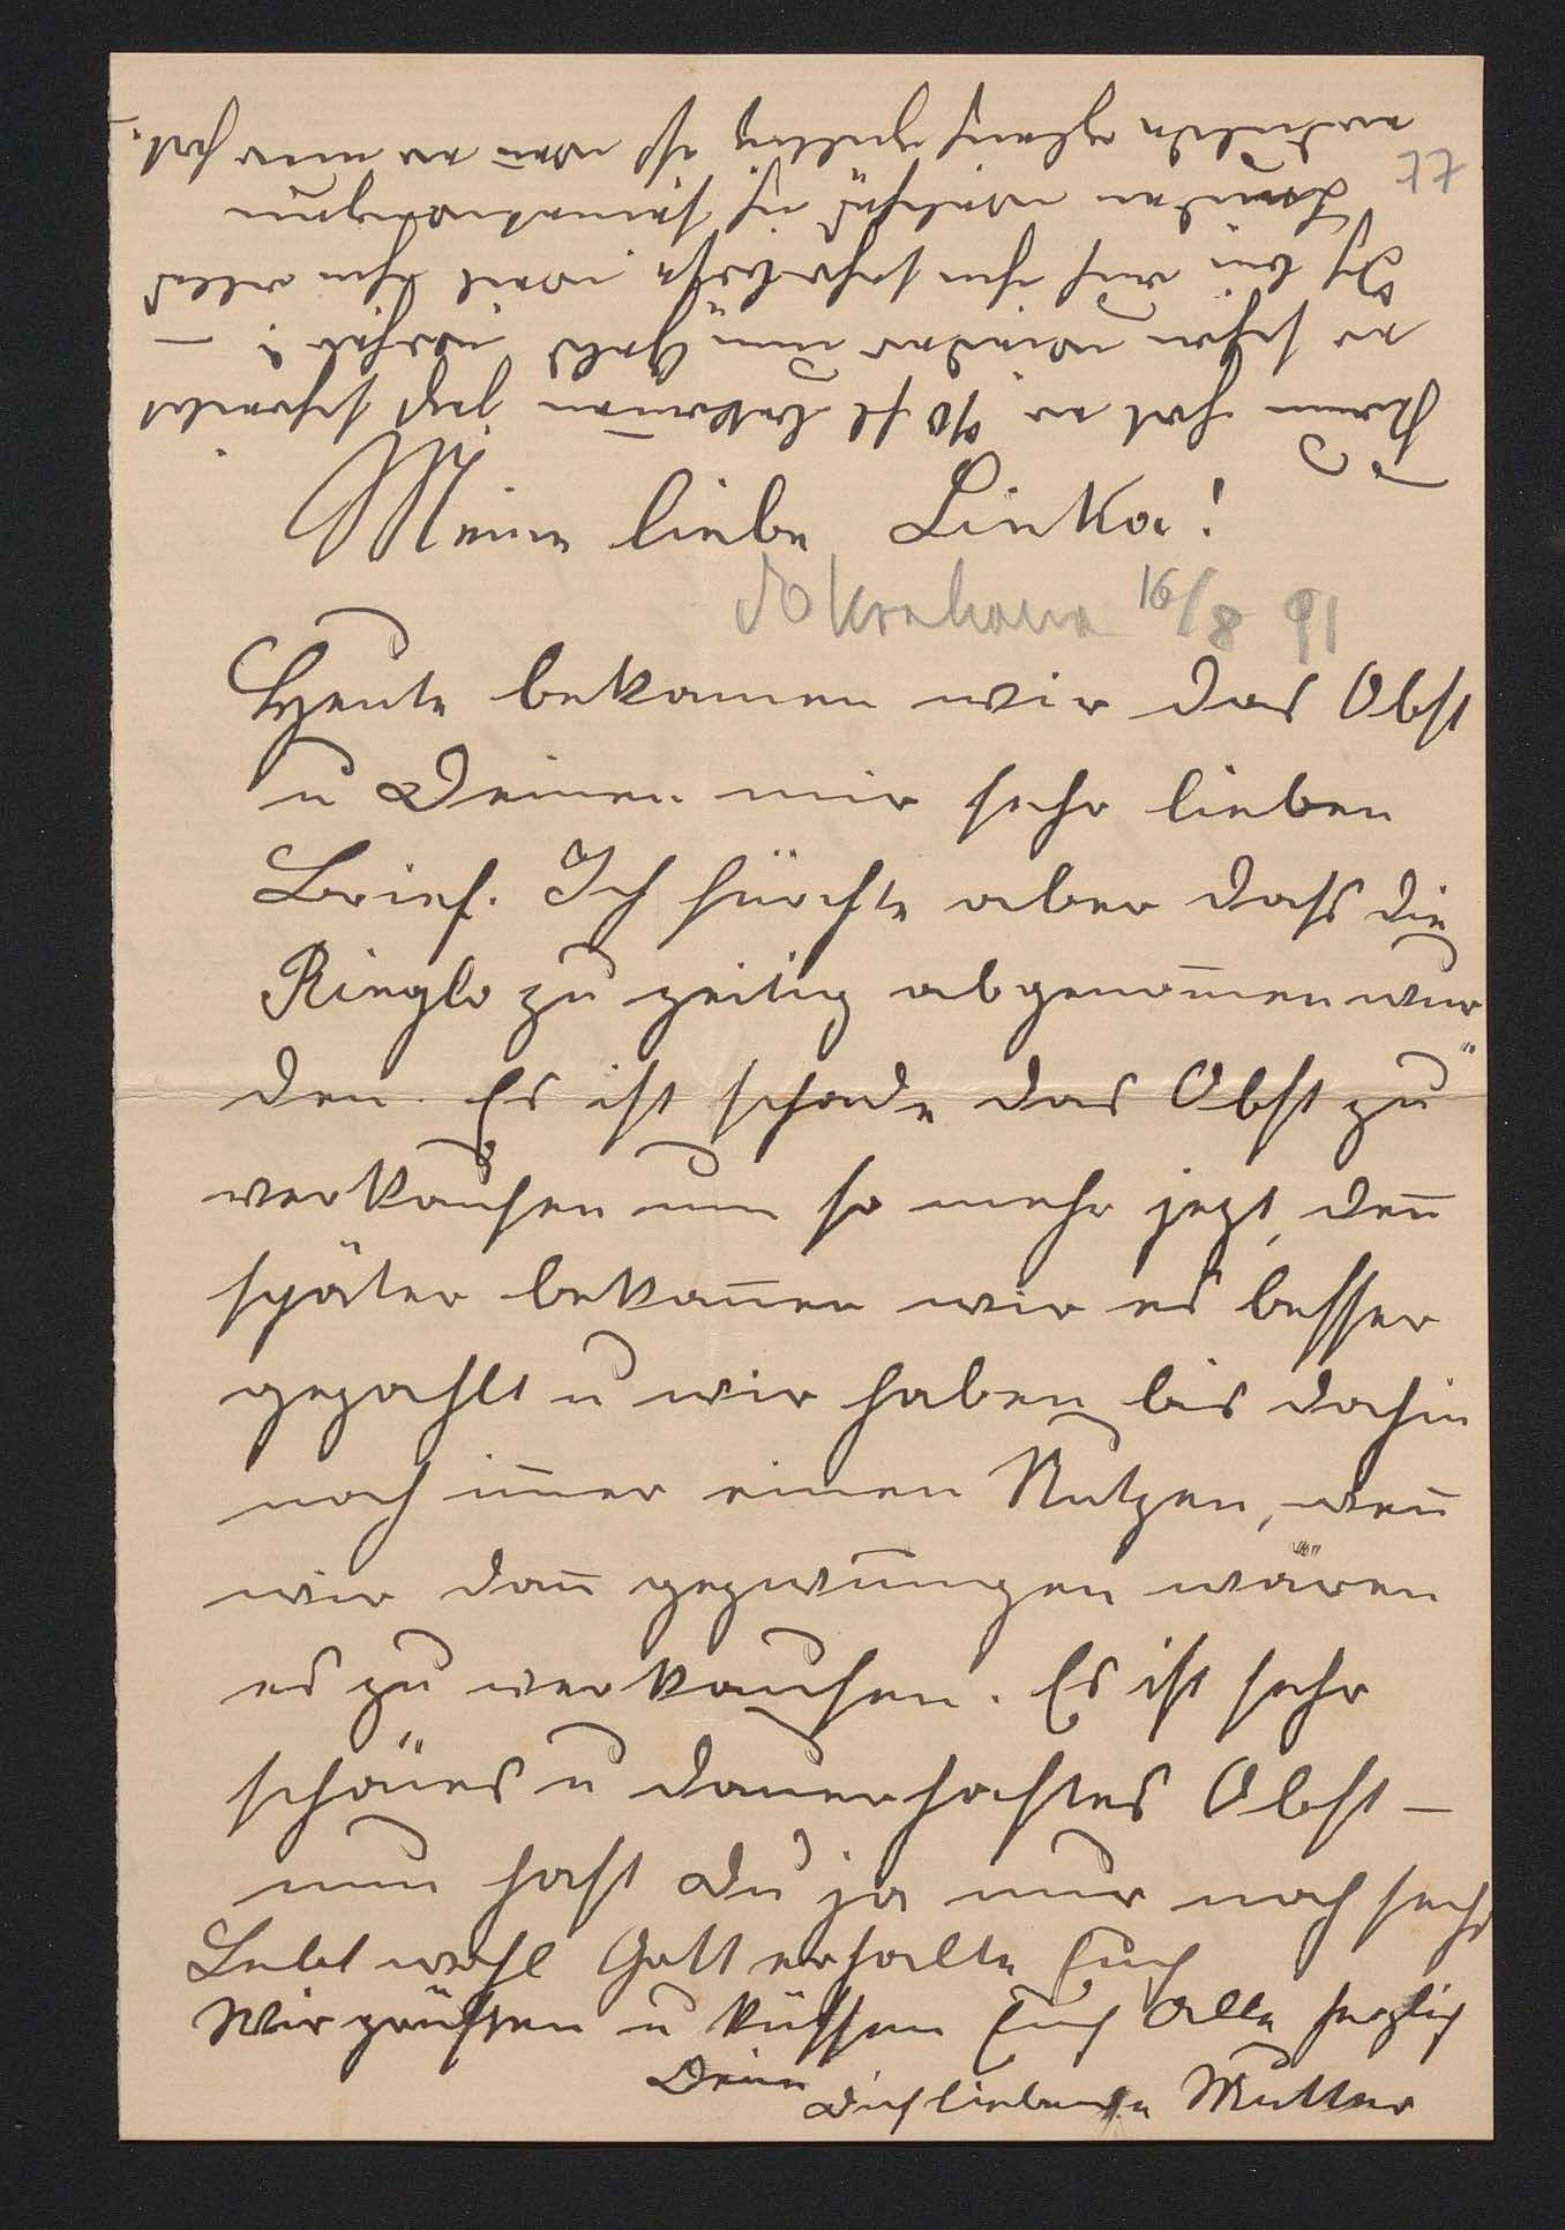 Meine liebe Linka!
do Krakowa 16/8 91
Heute bekamen wir das Obst
u Deinen mir sehr lieben
Brief. Ich fürchte aber daß die
Ringlo zu zeitig abgenom̄en wur
den. Es ist schade das Obst zu
verkaufen um so mehr jezt, den̄
später bekam̄en wir es besser
gezahlt u wir haben bis dahin
noch im̄er einen Nutzen, wen̄
wir dan̄ gezwungen wären
es zu verkaufen. Es ist sehr
schönes u dauerhaftes Obst –
nun hast Du ja nur noch sechs
Lebt wohl Gott erhalte Euch
Wir grüßen u küssen Euch Alle herzlich
Deine Dich liebende Mutter
77
Kaum hat er 90 fl bekom̄en jezt schreibt
er schon wieder um Geld
Ich bin auf ihn sehr böse weil ihm alles
ist wen̄ er nur hat.